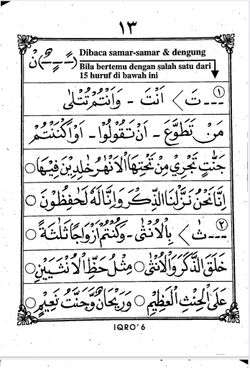 ١٣
Dibaca samar-samar & dengung
Bila bertemu dengan salah satu dari
15 huruf di bawah ini
١ --- ت > أَنْتَ - وَأَنْتُمْ تُتْلَى
مَنْ تَطَوَّعَ - أَنْ تَقُولُوا - أَوْ كُنْتُمْ
جَنّٰتٍ تَجْرِيْ مِنْ تَحْتِهَا الْاَنْهٰرُ خٰلِدِيْنَ فِيْهَا
اِنَّا نَحْنُ نَزَّلْنَا الذِّكْرَ وَاِنَّا لَهٗ لَحٰفِظُوْنَ
٢ --- ث > بِالْاُنْثٰى - وَكُنْتُمْ اَزْوَاجًا ثَلٰثَةً
خَلَقَ الذَّكَرَ وَالْاُنْثٰى ○ مِثْلُ حَظِّ الْاُنْثَيَيْنِ ○
عَلَى الْحِنْثِ الْعَظِيْمِ ○ وَرَيْحَانٌ وَّجَنَّتُ نَعِيْمٍ ○
IQRO' 6